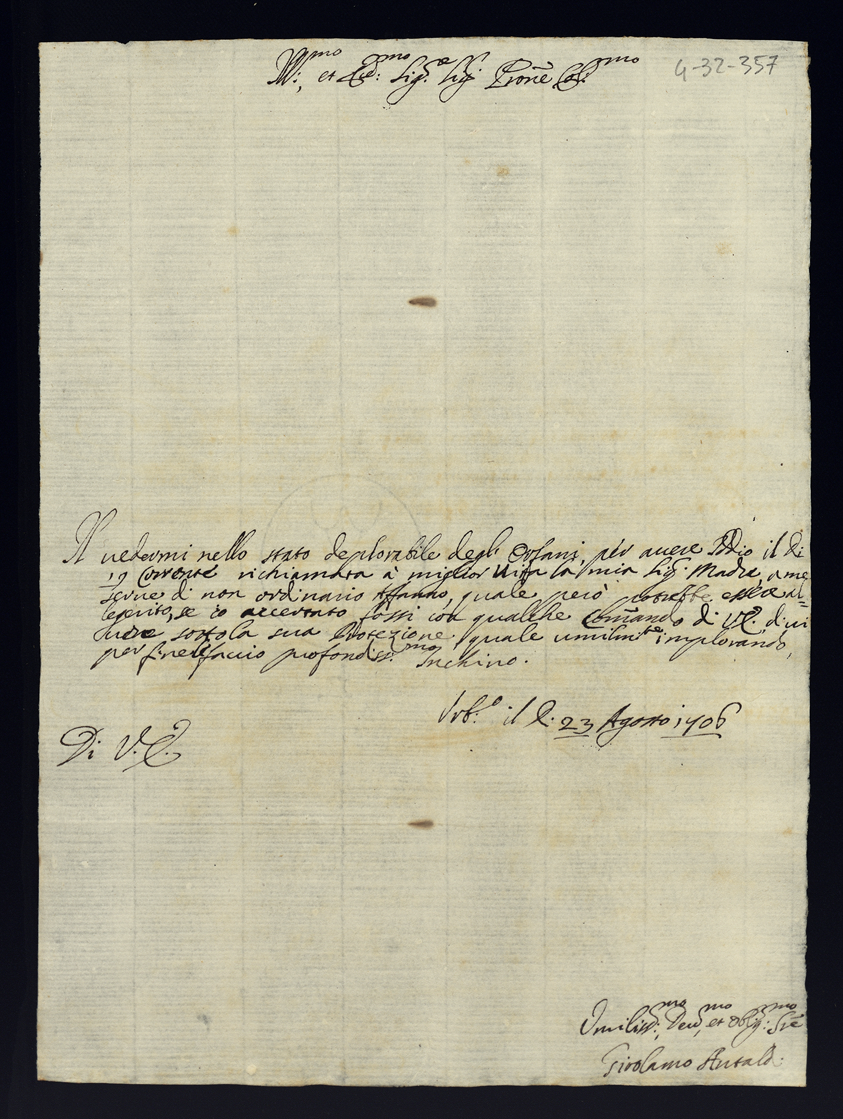 Ill:mo, et Ecc:mo Sig.e Sig: Prone Col:mo
4-32-357
Il uedermi nello stato deplorabile degli Orfani, per auere Iddio il di
19 Corrente richiamata à miglior uita la mia Sig: Madre, a me
serue di non ordinario affanno, quale però potrebbe essere al=
legerito, se io accertato fossi con qualche Comãndo di V.E. di ui
uere sotto la sua Protezione, quale umilmte implorando,
per fine faccio profondiss:mo Inchino.
Urb:o il di 23 Agosto 1706
Di V.E.
Umiliss:mo, Deu:mo, et Oblig:mo Sre
Girolamo Antaldi